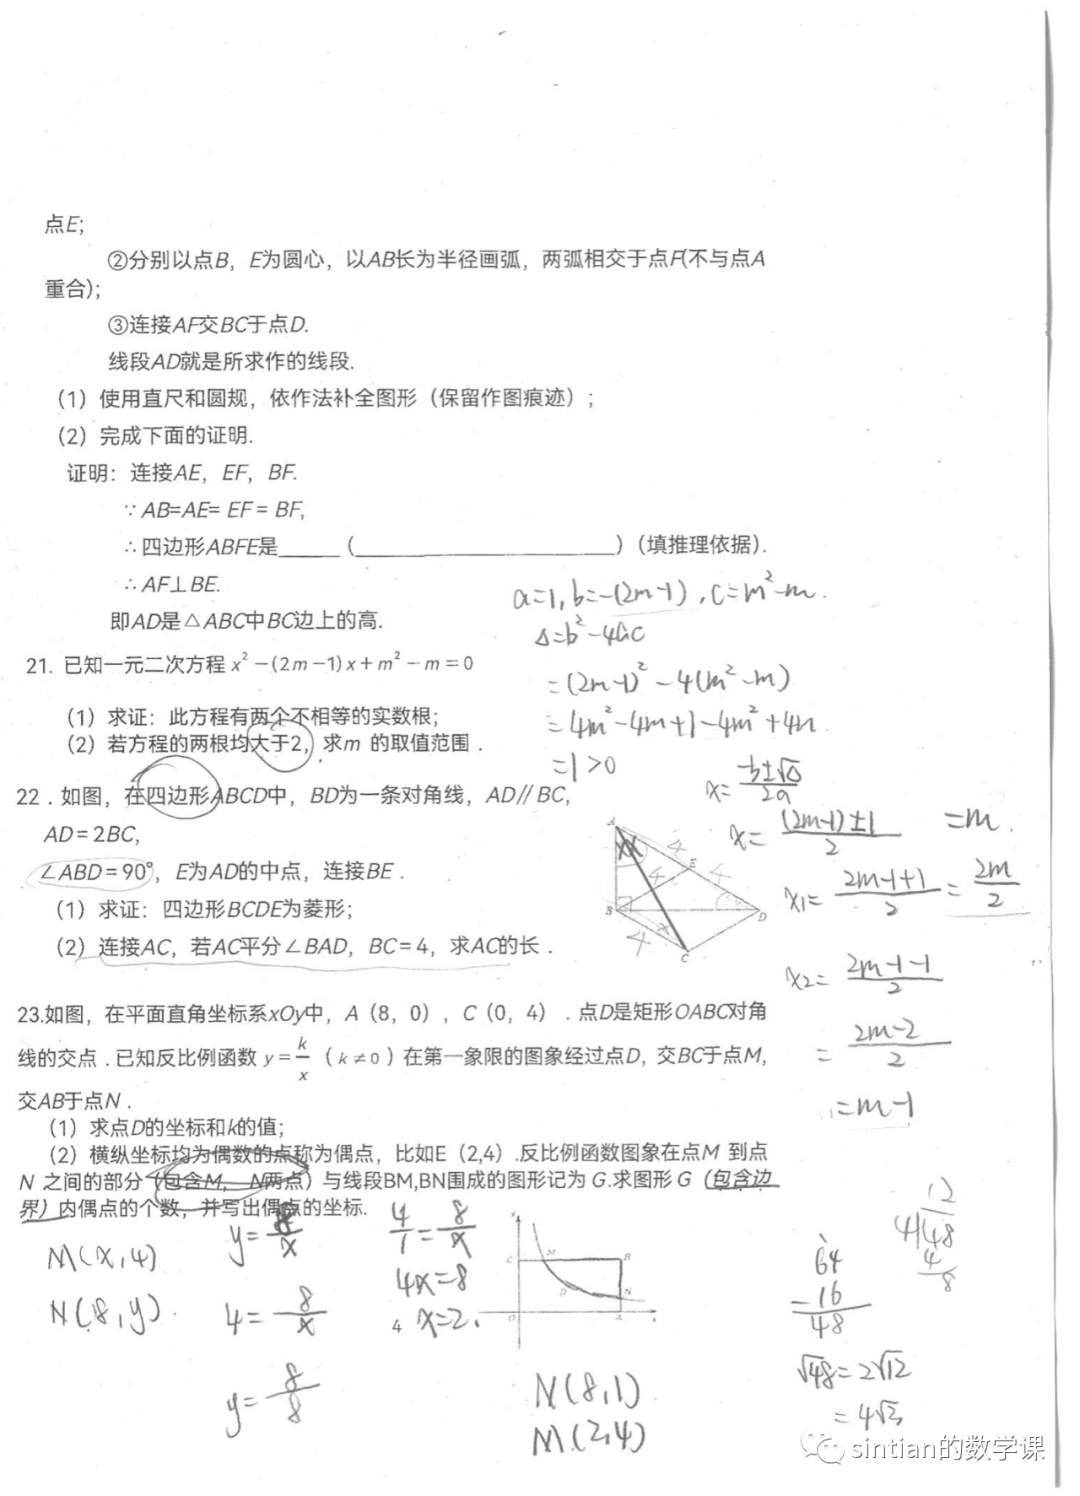 点E;
②分别以点B，E为圆心，以AB长为半径画弧，两弧相交于点F(不与点A
重合);
③连接AF交BC于点D.
线段AD就是所求作的线段.
（1）使用直尺和圆规，依作法补全图形（保留作图痕迹）;
（2）完成下面的证明.
证明：连接AE，EF，BF.
∵ AB=AE= EF = BF,
∴四边形ABFE是______（__________________________）（填推理依据).
∴AF⊥BE.
即AD是△ABC中BC边上的高.
a=1, b=-(2m-1), c=m²-m.
Δ=b²-4ac
=(2m-1)²-4(m²-m)
=4m²-4m+1-4m²+4m
=1>0
21. 已知一元二次方程 x²-(2m-1)x+m²-m=0
（1）求证：此方程有两个不相等的实数根;
（2）若方程的两根均大于2，求m 的取值范围 .
x= (-b±√Δ)/2a
x= ((2m-1)±1)/2
x₁= (2m-1+1)/2 = 2m/2
=m.
x₂= (2m-1-1)/2
= (2m-2)/2
=m-1
22 . 如图，在四边形ABCD中，BD为一条对角线，AD∥BC，
AD=2BC,
∠ABD=90°，E为AD的中点，连接BE .
（1）求证：四边形BCDE为菱形;
（2）连接AC，若AC平分∠BAD，BC=4，求AC的长 .
A
E
B
D
C
4
4
4
4
23.如图，在平面直角坐标系xOy中，A（8，0），C（0，4）. 点D是矩形OABC对角
线的交点 . 已知反比例函数 y=k/x（k≠0）在第一象限的图象经过点D，交BC于点M，
交AB于点N .
（1）求点D的坐标和k的值;
（2）横纵坐标均为偶数的点称为偶点，比如E（2,4）.反比例函数图象在点M 到点
N 之间的部分（包含M，N两点）与线段BM,BN围成的图形记为 G.求图形 G（包含边
界）内偶点的个数，并写出偶点的坐标.
M(x,4)
N(8,y).
y= 8/x
4= 8/x
y= 8/8
4/1 = 8/x
4x=8
x=2.
4
C
M
B
D
N
O
A
x
N(8,1)
M(2,4)
64
-16
48
12
4 48
4
8
√48=2√12
=4√3
sintian的数学课